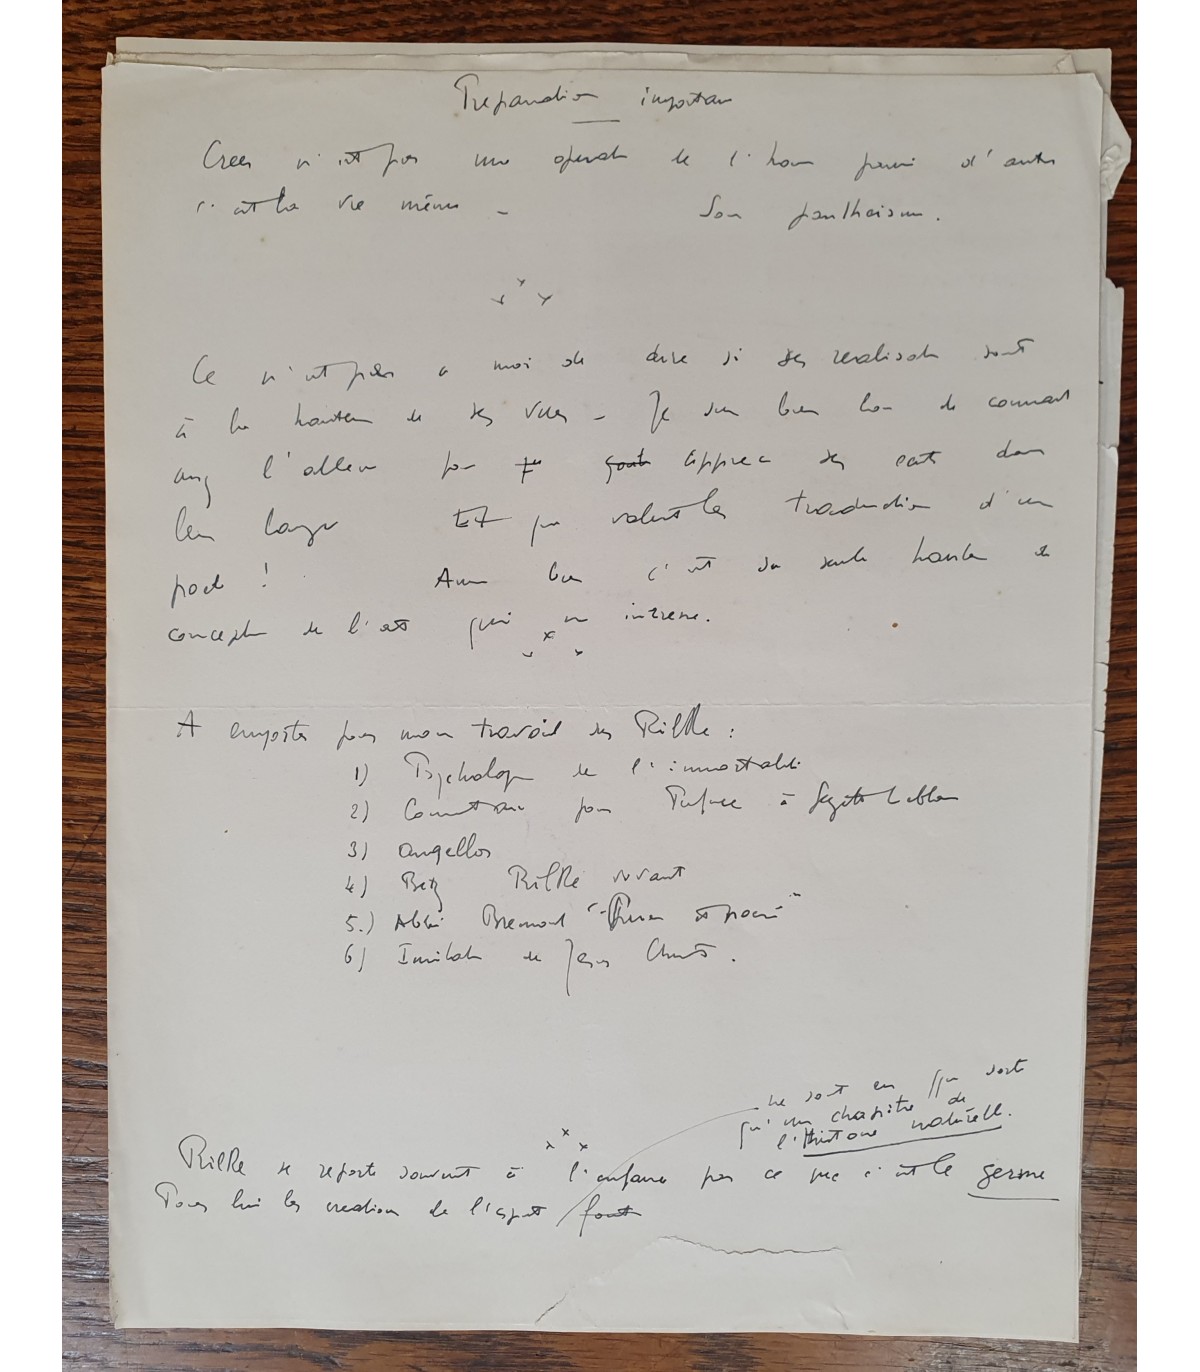 Preparation importan
Creer n'est pas une operati de l'hom parmi d'autres
c'est la vie même - Son pantheisme.
Ce n'est pas a moi de dire si ses realisati sont
à la hauteur de ses vues - Je suis bien loin de connait
assez l'alleman pour apprecier ses ecrits dans
leur langue Et que valent les traduction d'un
poete ! Aussi bien c'est sa seule hauteur de
conception de l'art qui m'interesse.
A emporter pour mon travail sur Rilke :
1) Psychologie de l'immortalité
2) Commentaire pour Preface à
3) Angellos
4) Betz Rilke vivant
5.) Abbé Bremond "Prière et poesie"
6) Imitation de Jesus Christ.
ne sont en q'ue sorte
qu'un chapitre de
l'Histoire naturelle.
Rilke se reporte souvent à l'enfance par ce que c'est le germe
Pour lui les creations de l'esprit / font